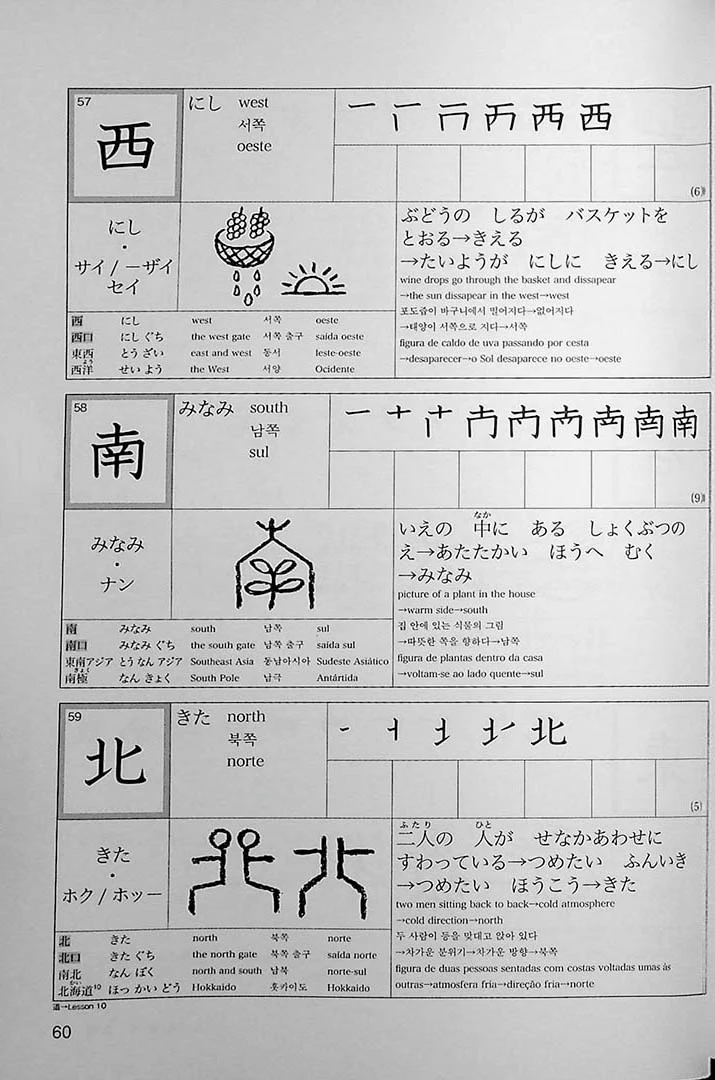 57
西
にし west
서쪽
oeste
一 西
(6)
にし
・
サイ / ーザイ
セイ
ぶどうの しるが バスケットを
とおる→きえる
→たいようが にしに きえる→にし
wine drops go through the basket and dissapear
→the sun dissapear in the west→west
포도즙이 바구니에서 떨어지다→없어지다
→태양이 서쪽으로 지다→서쪽
figura de caldo de uva passando por cesta
→desaparecer→o Sol desaparece no oeste→oeste
西 にし west 서쪽 oeste
西口 にし ぐち the west gate 서쪽 출구 saída oeste
東西 とう ざい east and west 동서 leste-oeste
よう
西洋 せい よう the West 서양 Ocidente
58
南
みなみ south
남쪽
sul
一 十 南
(9)
みなみ
・
ナン
なか
いえの 中に ある しょくぶつの
え→あたたかい ほうへ むく
→みなみ
picture of a plant in the house
→warm side→south
집 안에 있는 식물의 그림
→따뜻한 쪽을 향하다→남쪽
figura de plantas dentro da casa
→voltam-se ao lado quente→sul
南 みなみ south 남쪽 sul
南口 みなみ ぐち the south gate 남쪽 출구 saída sul
東南アジア とう なん アジア Southeast Asia 동남아시아 Sudeste Asiático
きょく
南極 なん きょく South Pole 남극 Antártida
59
北
きた north
북쪽
norte
北
(5)
きた
・
ホク / ホッー
ふたり ひと
二人の 人が せなかあわせに
すわっている→つめたい ふんいき
→つめたい ほうこう→きた
two men sitting back to back→cold atmosphere
→cold direction→north
두 사람이 등을 맞대고 앉아 있다
→차가운 분위기→차가운 방향→북쪽
figura de duas pessoas sentadas com costas voltadas umas às
outras→atmosfera fria→direção fria→norte
北 きた north 북쪽 norte
北口 きた ぐち the north gate 북쪽 출구 saída norte
南北 なん ぼく north and south 남북 norte-sul
かい
北海道10 ほっ かい どう Hokkaido 홋카이도 Hokkaido
道→Lesson 10
60